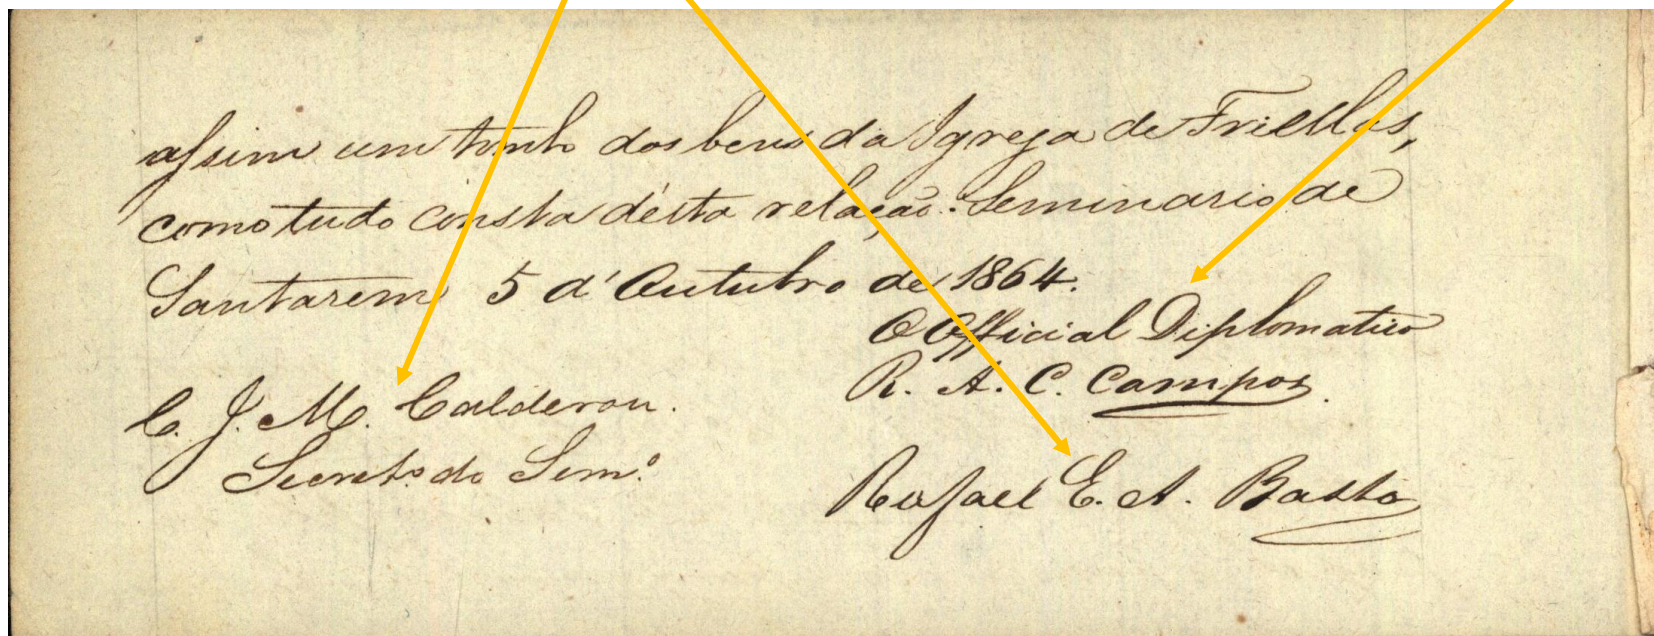 assim um tombo dos bens da Igreja de Friellas,
como tudo consta désta relação. Seminario de
Santarem 5 d'Outubro de 1864.
O Official Diplomatico
R. A. C. Campos.
C. J. M. Calderon.
Secret.º do Sem.º
Rafael E. A. Basto